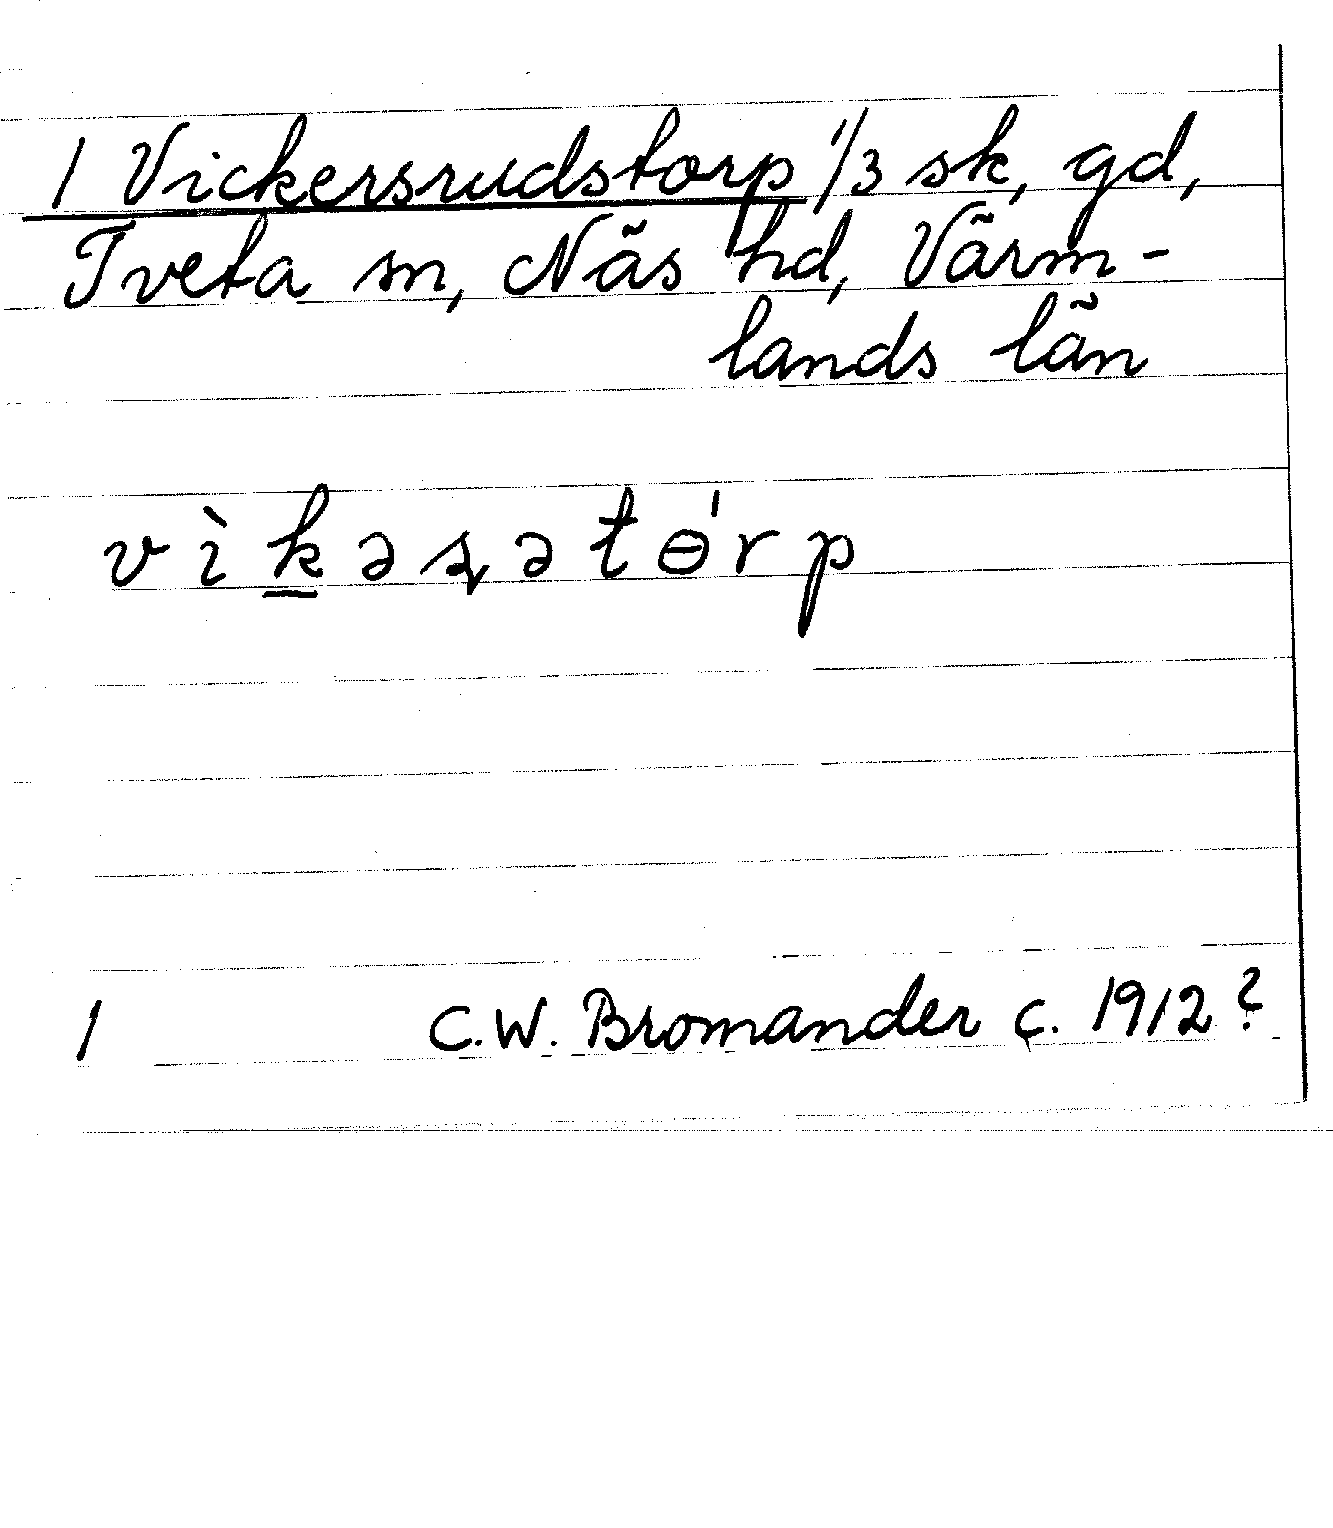 1 Vickersrudstorp 1/3 sk, gd,
Tveta sn, Näs hd, Värm-
lands län
vìk̲əʂətɵ́rp
1 C.W. Bromander c. 1912?